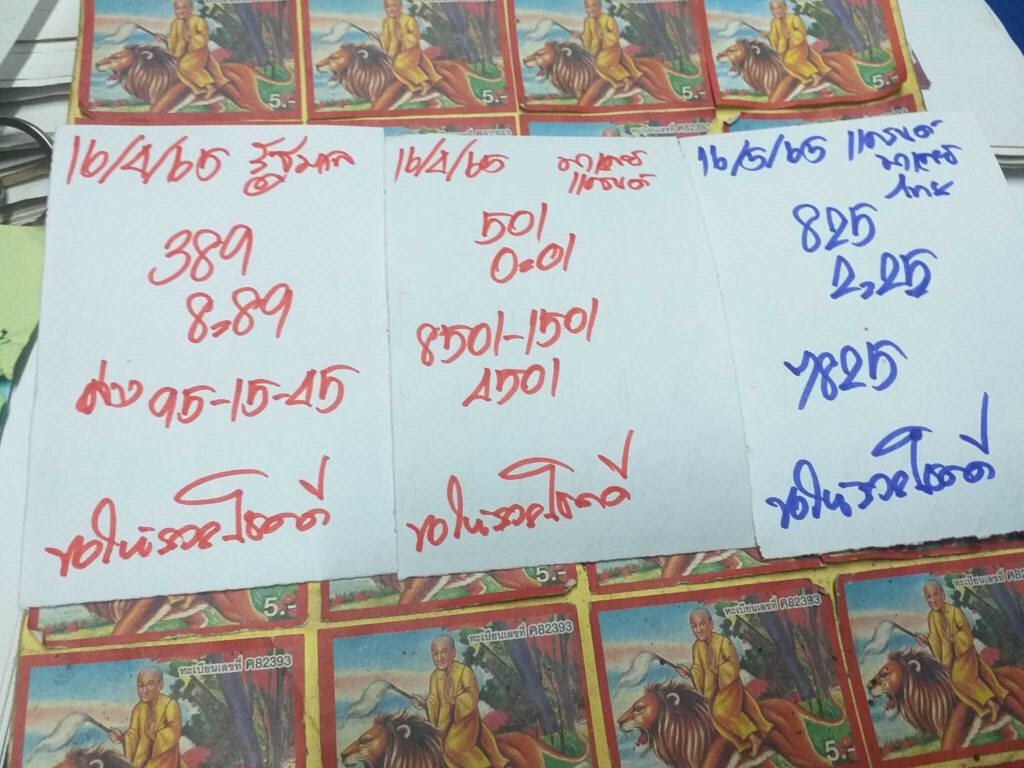 5.-
5.-
5.-
5.-
16/4/65
389
8.89
95-15-45
ขอให้รวยโชคดี
16/4/65
501
0.01
8501-1501
4501
ขอให้รวยโชคดี
16/5/65
825
2.25
7825
ขอให้รวยโชคดี
5.-
5.-
ทะเบียนเลขที่ ค82393
ทะเบียนเลขที่ ค82393
ทะเบียนเลขที่ ค82393
ทะเบียนเลขที่ ค82393
5.-